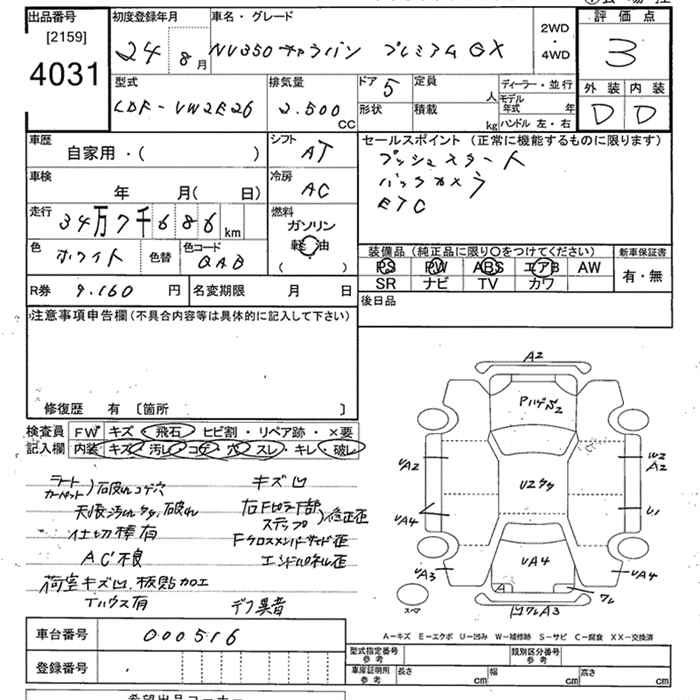 出品番号
[2159]
4031
初度登録年月
24 8 月
車名・グレード
NV350 キャラバン プレミアム GX
2WD
・
4WD
評価点
3
外装 内装
D D
型式
LDF-VW2E26
排気量
2.500
CC
ドア
5
形状
定員
人
積載
kg
ディーラー・並行
モデル年式 年
ハンドル 左・右
車歴
自家用・( )
シフト
AT
車検
年 月( 日)
冷房
AC
走行
34万7千686 km
燃料
ガソリン
軽油
( )
色
ホワイト
色替
色コード
QAB
R券 9.160 円
名変期限 月 日
セールスポイント (正常に機能するものに限ります)
プッシュスタート
バックカメラ
ETC
装備品 (純正品に限り〇をつけてください)
PS PW ABS エアB AW
SR ナビ TV カワ
新車保証書
有・無
後日品
注意事項申告欄(不具合内容等は具体的に記入して下さい)
修復歴 有 〔箇所 〕
検査員記入欄
FW キズ・飛石・ヒビ割・リペア跡・×要
内装 キズ・汚レ・コゲ・穴・スレ・キレ・破レ
フロートカーペット)破れコゲ穴
天張汚れ ケケ,破れ
仕切棒有
AC不良
荷室キズ凹,板貼加工
Tハウス有
キズ凹
右Fピラー下部
ステップ)修正歪
Fクロスメンバーサイド歪
エンドパネル歪
デフ異音
A2
Pハゲ
U2ケケ
UA2
W2
A2
UA4
U1
UA3
UA4
UA4
A
ワレ
凹ワレA3
スペア
A-キズ E-エクボ U-凹み W-補修跡 S-サビ C-腐食 XX-交換済
車台番号 000516
登録番号
型式指定番号
参考
類別区分番号
参考
車庫証明用
参考
長さ cm
幅 cm
高さ cm
希望出品コーナー